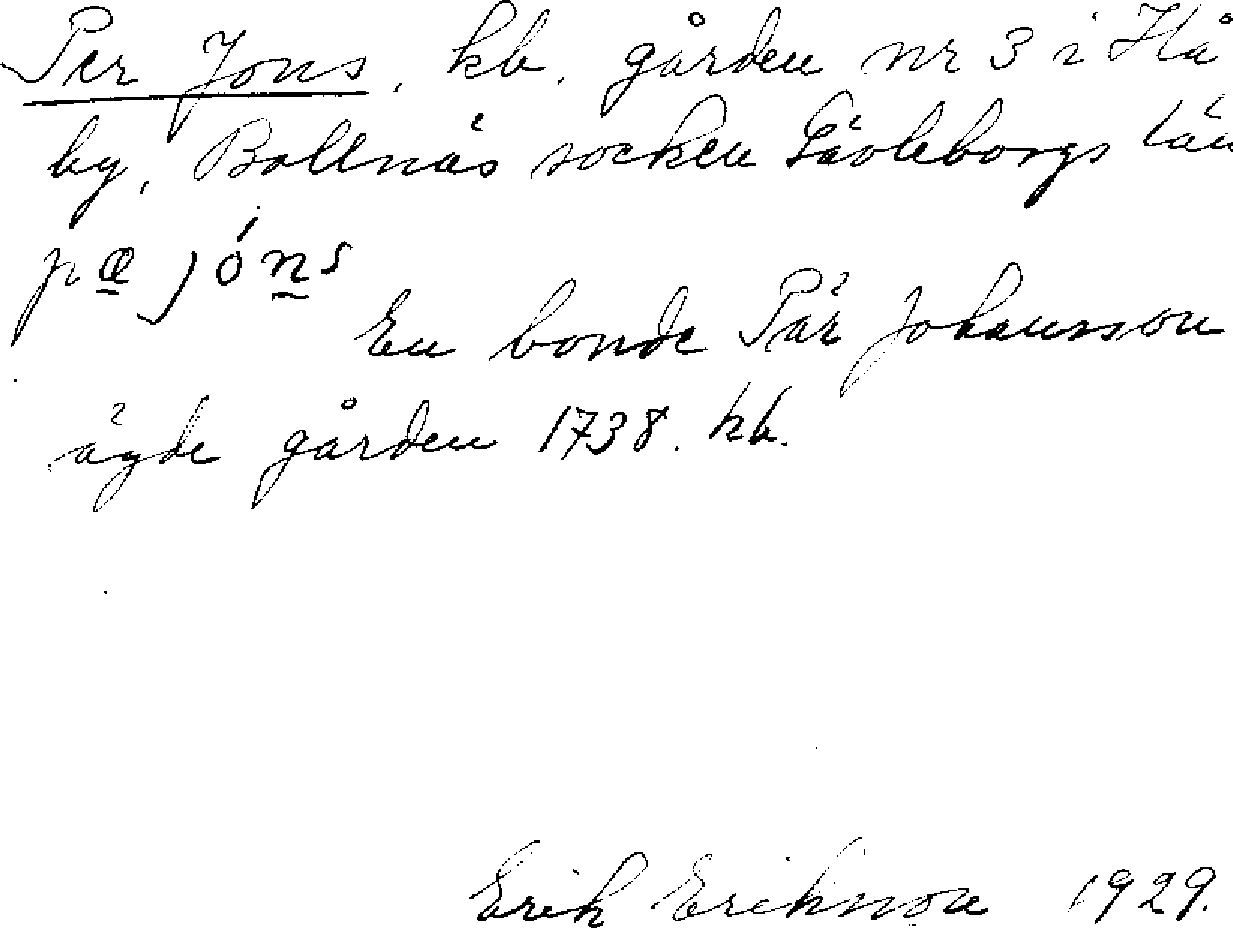 Per Jons. kb. gården nr 3 i Hå
by, Bollnäs socken Gävleborgs län
pæ jóns
En bonde Pär Johansson
ägde gården 1738. kb.
Erik Erikson 1929.